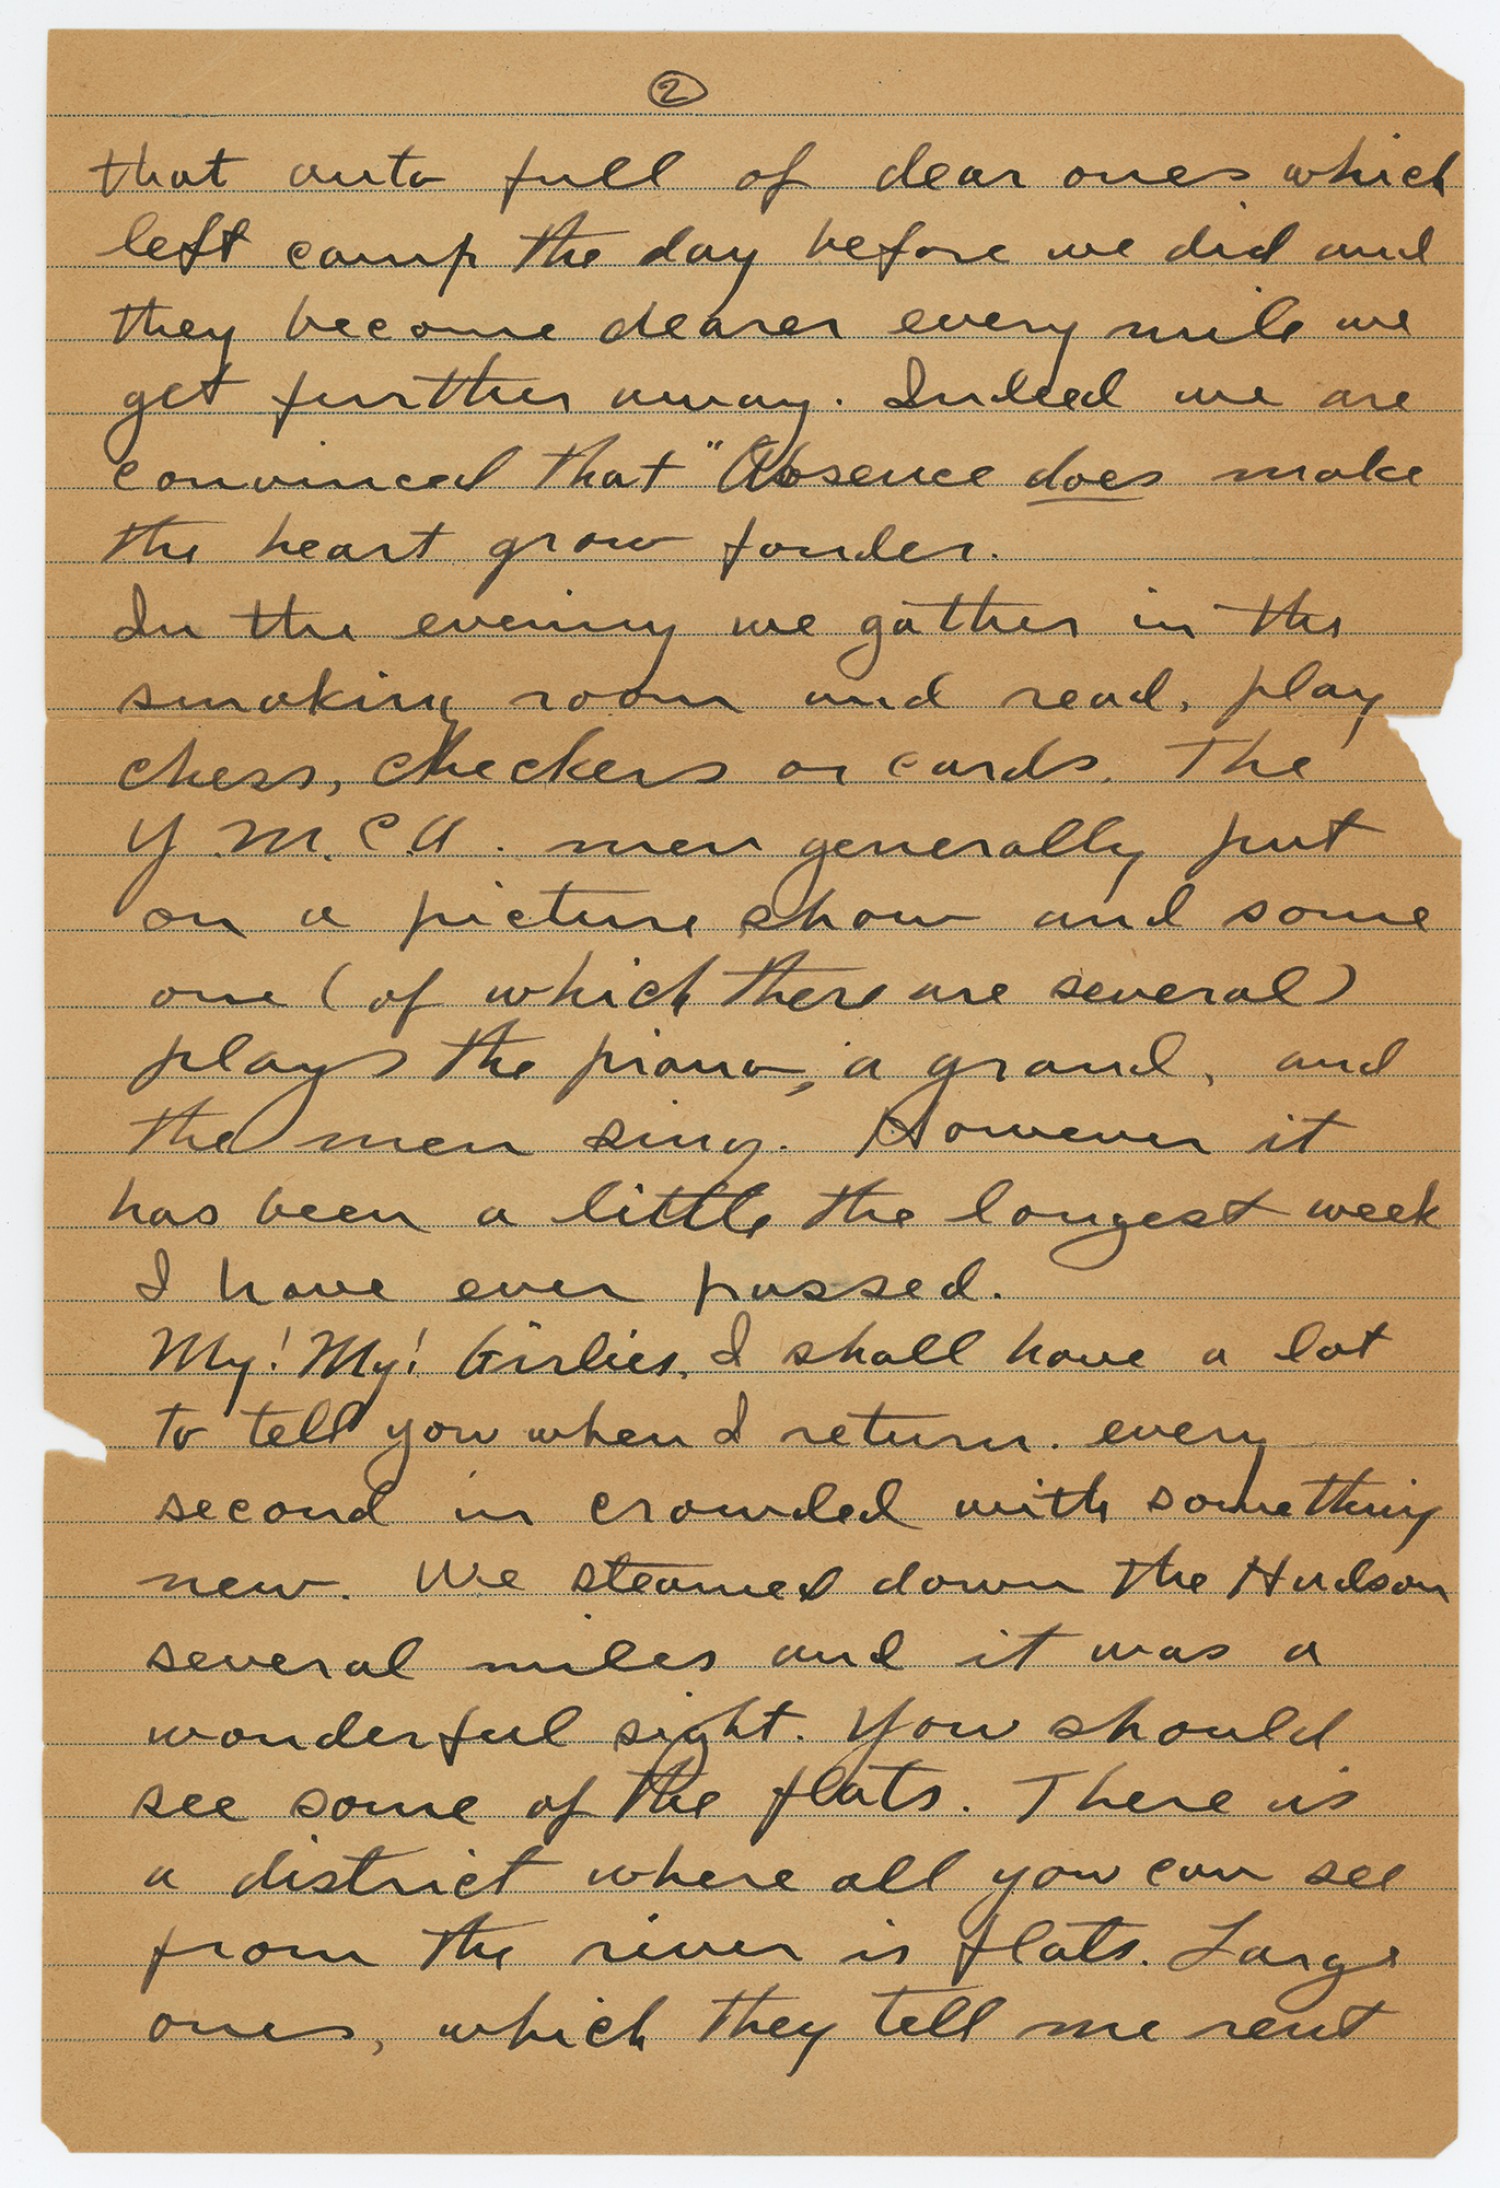 2
that auto full of dear ones which
left camp the day before we did and
they become dearer every mile we
get further away. Indeed we are
convinced that "Absence does make
the heart grow fonder.
In the evening we gather in the
smoking room and read, play
chess, checkers or cards. The
Y.M.C.A. men generally put
on a picture show and some
one (of which there are several)
plays the piano, a grand, and
the men sing. However it
has been a little the longest week
I have ever passed.
My! My! Girlies, I shall have a lot
to tell you when I return. every
second is crowded with something
new. We steamed down the Hudson
several miles and it was a
wonderful sight. You should
see some of the flats. There is
a district where all you can see
from the river is flats. Large
ones, which they tell me rent